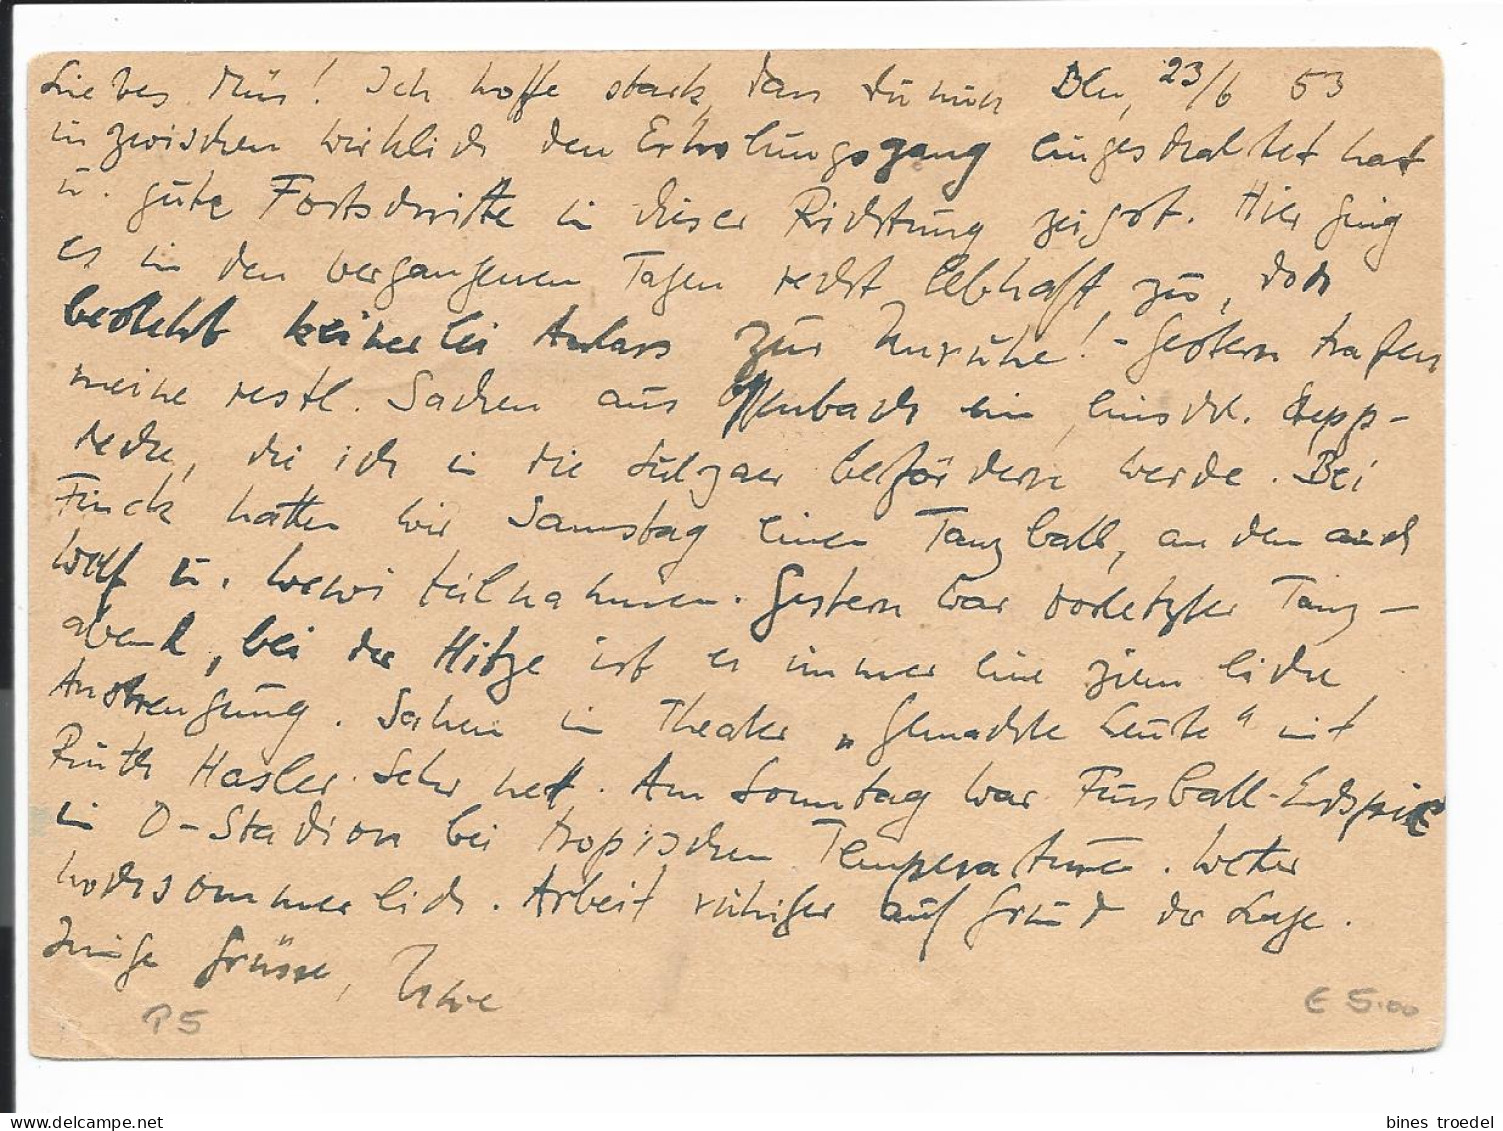 Liebes Müs! Ich hoffe stark, dass Du nun Bln, 23/6 53
inzwischen wirklich den Erholungsgang eingeschaltet hast
u. gute Fortschritte in dieser Richtung zeigst. Hier ging
es in den vergangenen Tagen recht lebhaft zu, doch
besteht keinerlei Anlass zur Unruhe! - Gestern trafen
meine restl. Sachen aus Offenbach ein, einschl. Stepp-
decke, die ich in die Sulzaer befördern werde. Bei
Finck hatten wir Samstag einen Tanzball, an dem auch
Wolf u. teilnahmen. Gestern war vorletzter Tanz-
abend, bei der Hitze ist es immer eine ziemliche
Anstrengung. Sahen im Theater „Gemachte Leute" mit
Ruth Hasler. Sehr nett. Am Sonntag war Fussball-Endspiel
im O-Stadion bei tropischen Temperaturen. Wetter
hochsommerlich. Arbeit ruhiger auf Grund der Lage.
Innige Grüsse,
P5
E 5.00
bines troedel